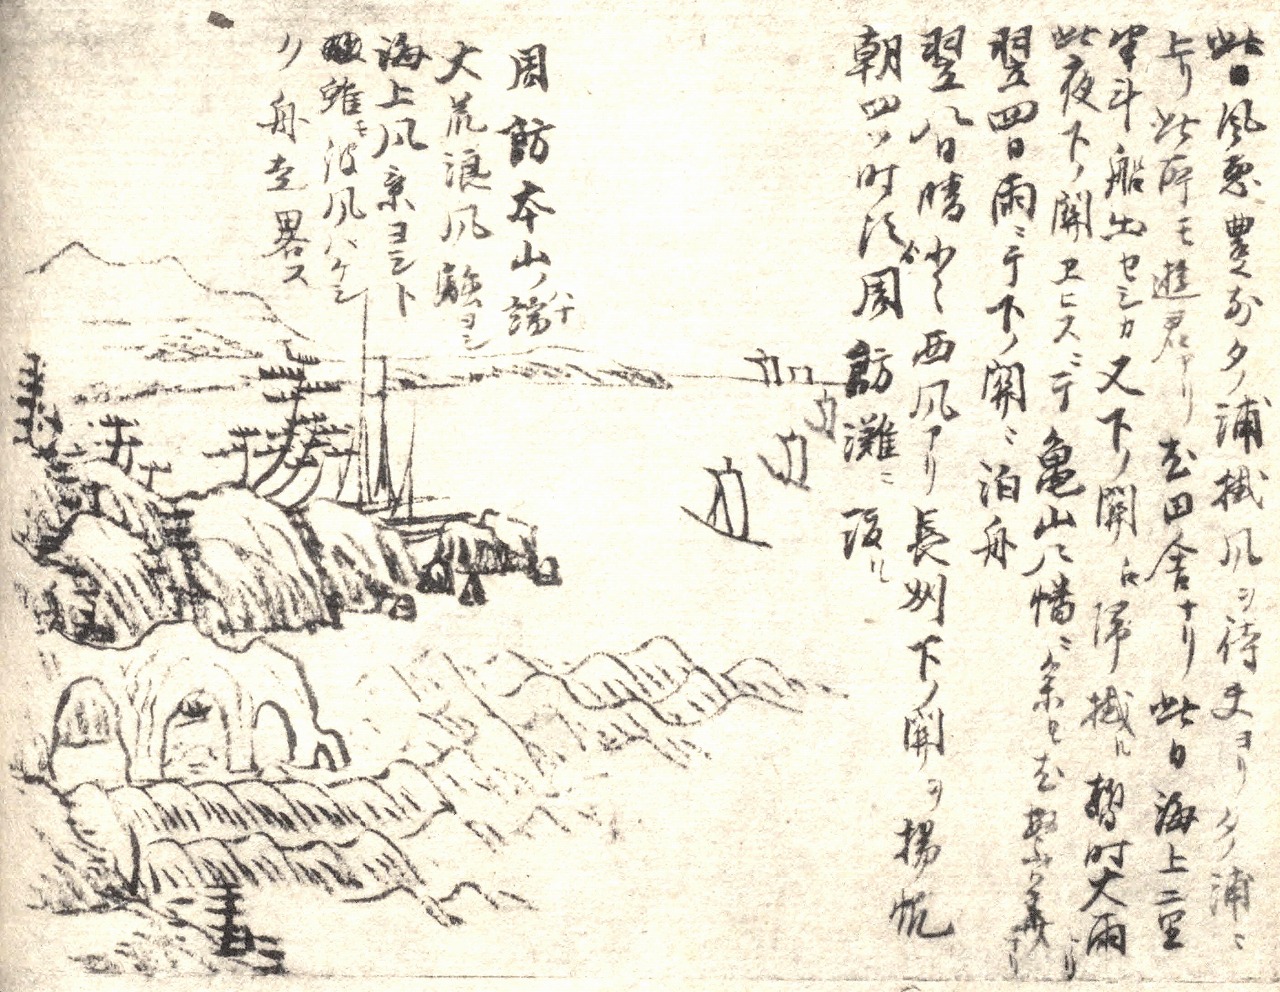 此日風悪豊前タノ浦掛風ヲ待夫ヨリタノ浦ニ
上リ此所モ遊君アリ至田舎ナリ此日海上二里
半斗船出セシカ又下ノ関ニ帰掛ル暫時大雨
此夜下ノ関ヱヒスニテ亀山八幡ニ参ル至
翌四日雨ニテ下ノ関ニ泊舟
翌八日晴少々西風アリ長州下ノ関ヲ揚帆
朝四ツ時頃周訪灘ニ
周訪本山ノ端
大荒浪風
海上風景ヨシト
雖モ波風ハケシ
ク舟中畧ス